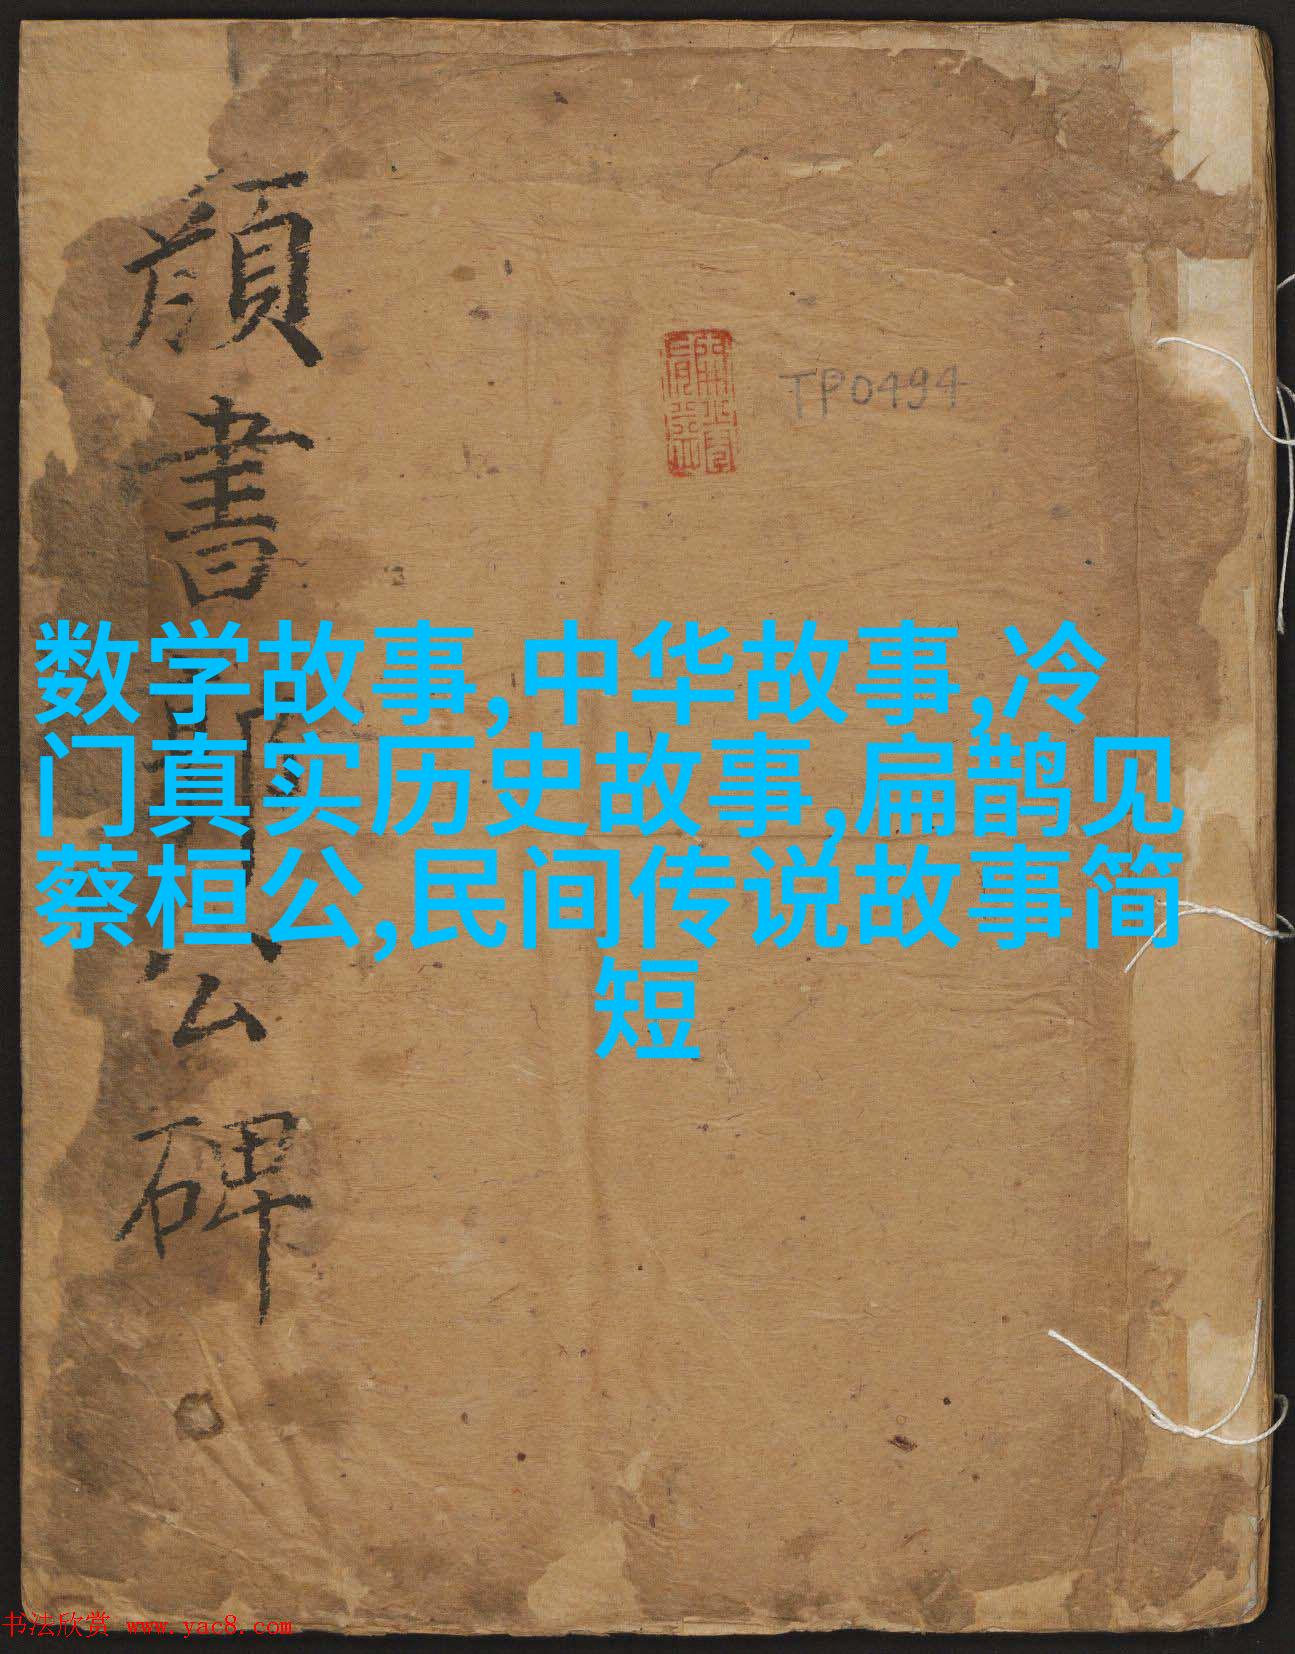 顔書郭公碑
TP0494
数学故事,中华故事,冷
门真实历史故事,扁鹊见
蔡桓公,民间传说故事简
短
书法欣赏 www.yac8.com